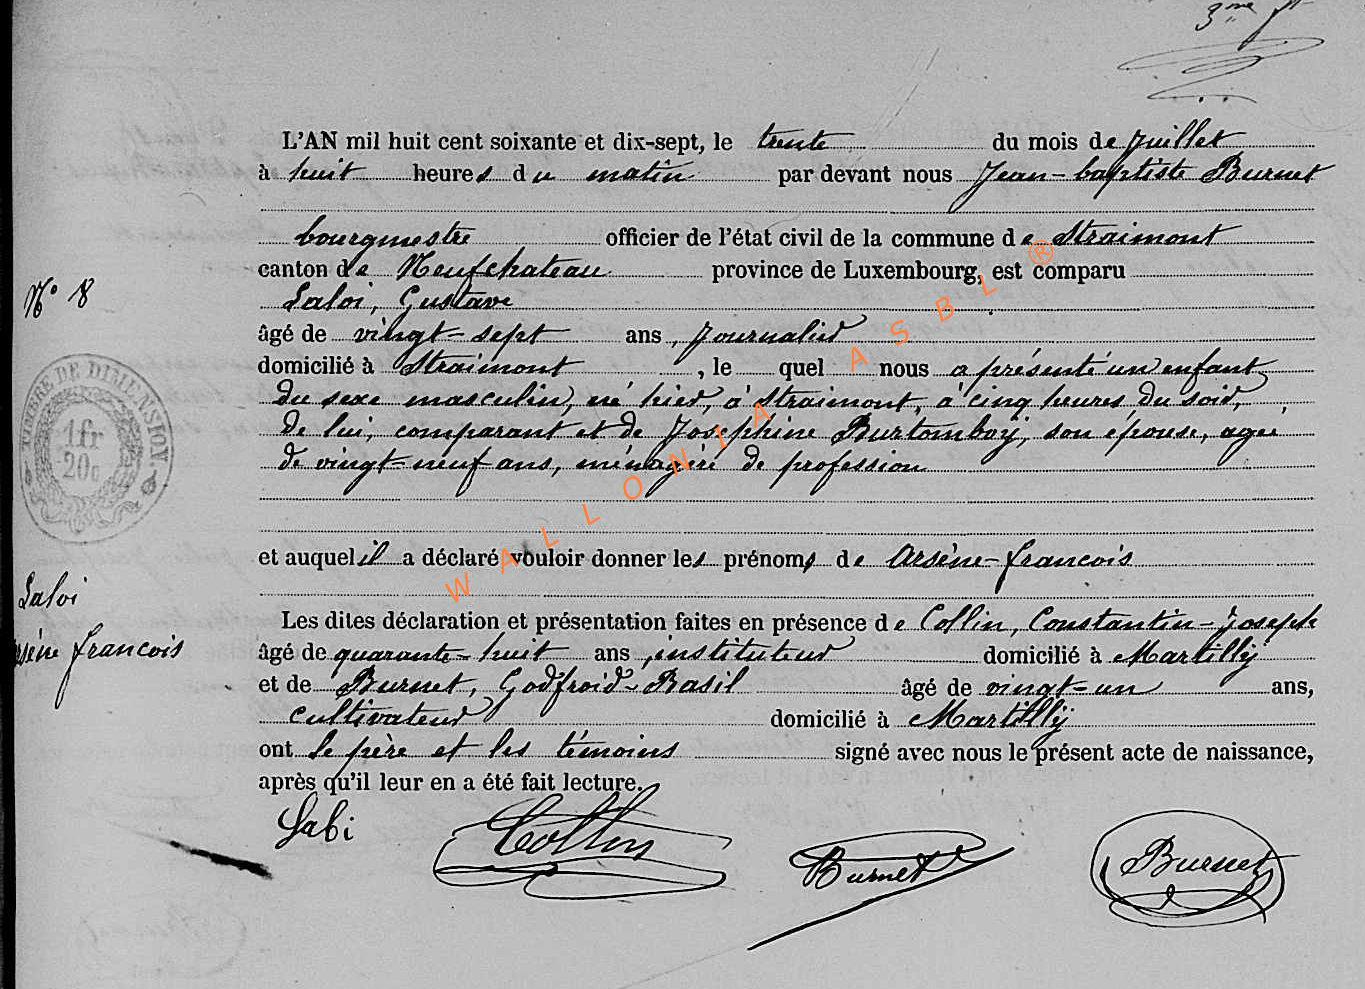 3me
L'AN mil huit cent soixante et dix-sept, le trente du mois de Juillet
à huit heures du matin par devant nous Jean-baptiste Burnet
bourgmestre officier de l'état civil de la commune de Straimont
canton de Neufchateau province de Luxembourg, est comparu
N° 8
Laloi, Gustave
âgé de vingt-sept ans, Journalier
domicilié à Straimont, le quel nous a présenté un enfant
du sexe masculin, né hier, à Straimont, à cinq heures du soir,
de lui, comparant et de Joséphine Burtomboy, son épouse, agée
de vingt-neuf ans, ménagère de profession
TIMBRE DE DIMENSION.
1fr
20c
et auquel il a déclaré vouloir donner les prénoms de Arsène-francois
Laloi
Arsène francois
Les dites déclaration et présentation faites en présence de Collin, Constantin-Joseph
âgé de quarante-huit ans, instituteur domicilié à Martilly
et de Burnet, Godfroid-Basil âgé de vingt-un ans,
cultivateur domicilié à Martilly
ont le père et les témoins signé avec nous le présent acte de naissance,
après qu'il leur en a été fait lecture.
Laloi Collin Burnet Burnet
WALLONIA ASBL ®